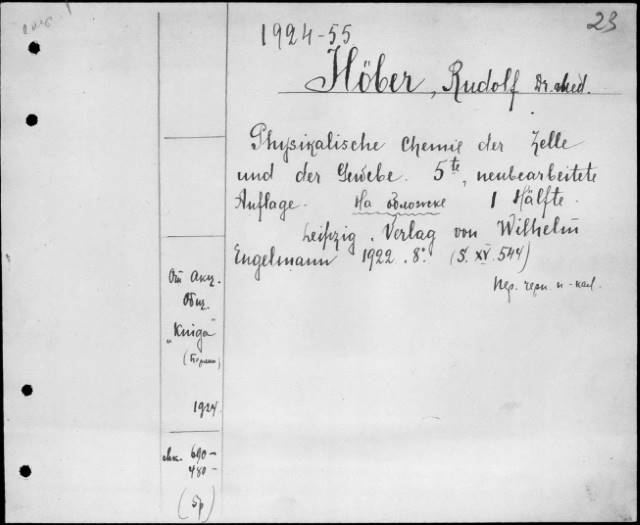 23
1924-55
Höber, Rudolf Dr. med.
Physikalische Chemie der Zelle
und der Gewebe. 5te, neubearbeitete
Auflage. На обложке 1 Hälfte.
Leipzig. Verlag von Wilhelm
Engelmann 1922. 8º. (S. XV. 544)
Пер. черн. и -кал.
От Акц.
Общ.
"Kniga"
1924.
690-
480-
(5р)